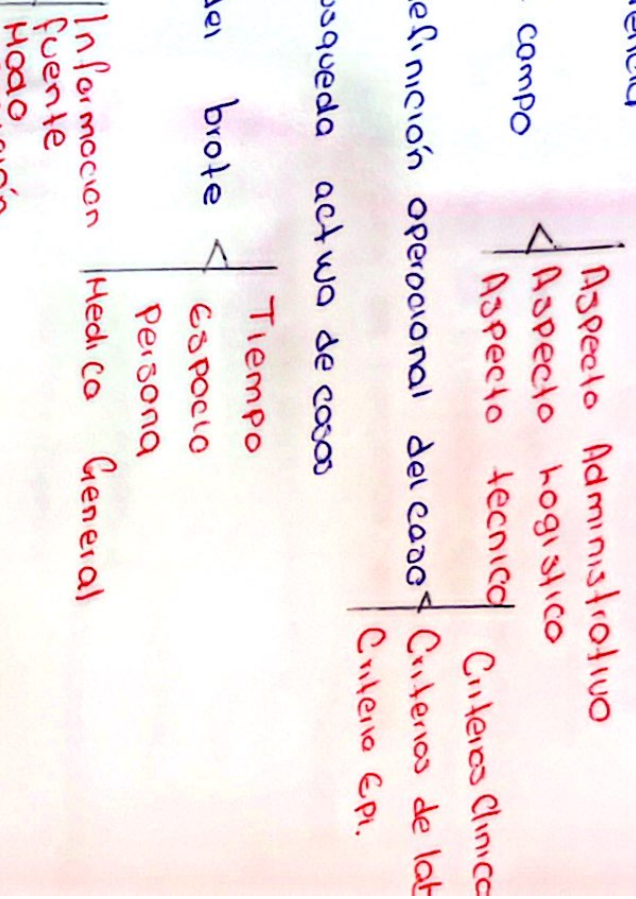 campo
Aspecto Administrativo
Aspecto Logistico
Aspecto tecnico
efinición operacional del caso
Criterios Clinico
Criterios de lab
Criterio Epi.
usqueda activa de casos
del brote
Tiempo
Espacio
persona
Medica General
Informacion
fuente
Modo